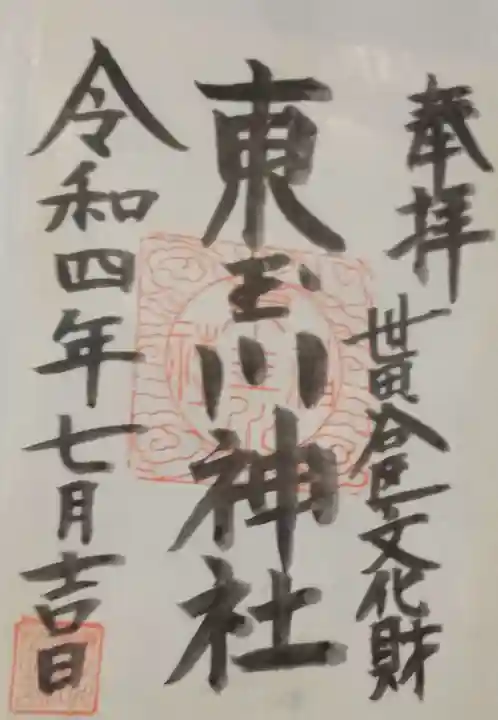 奉拝
世田谷区文化財
東玉川神社
令和四年七月吉日